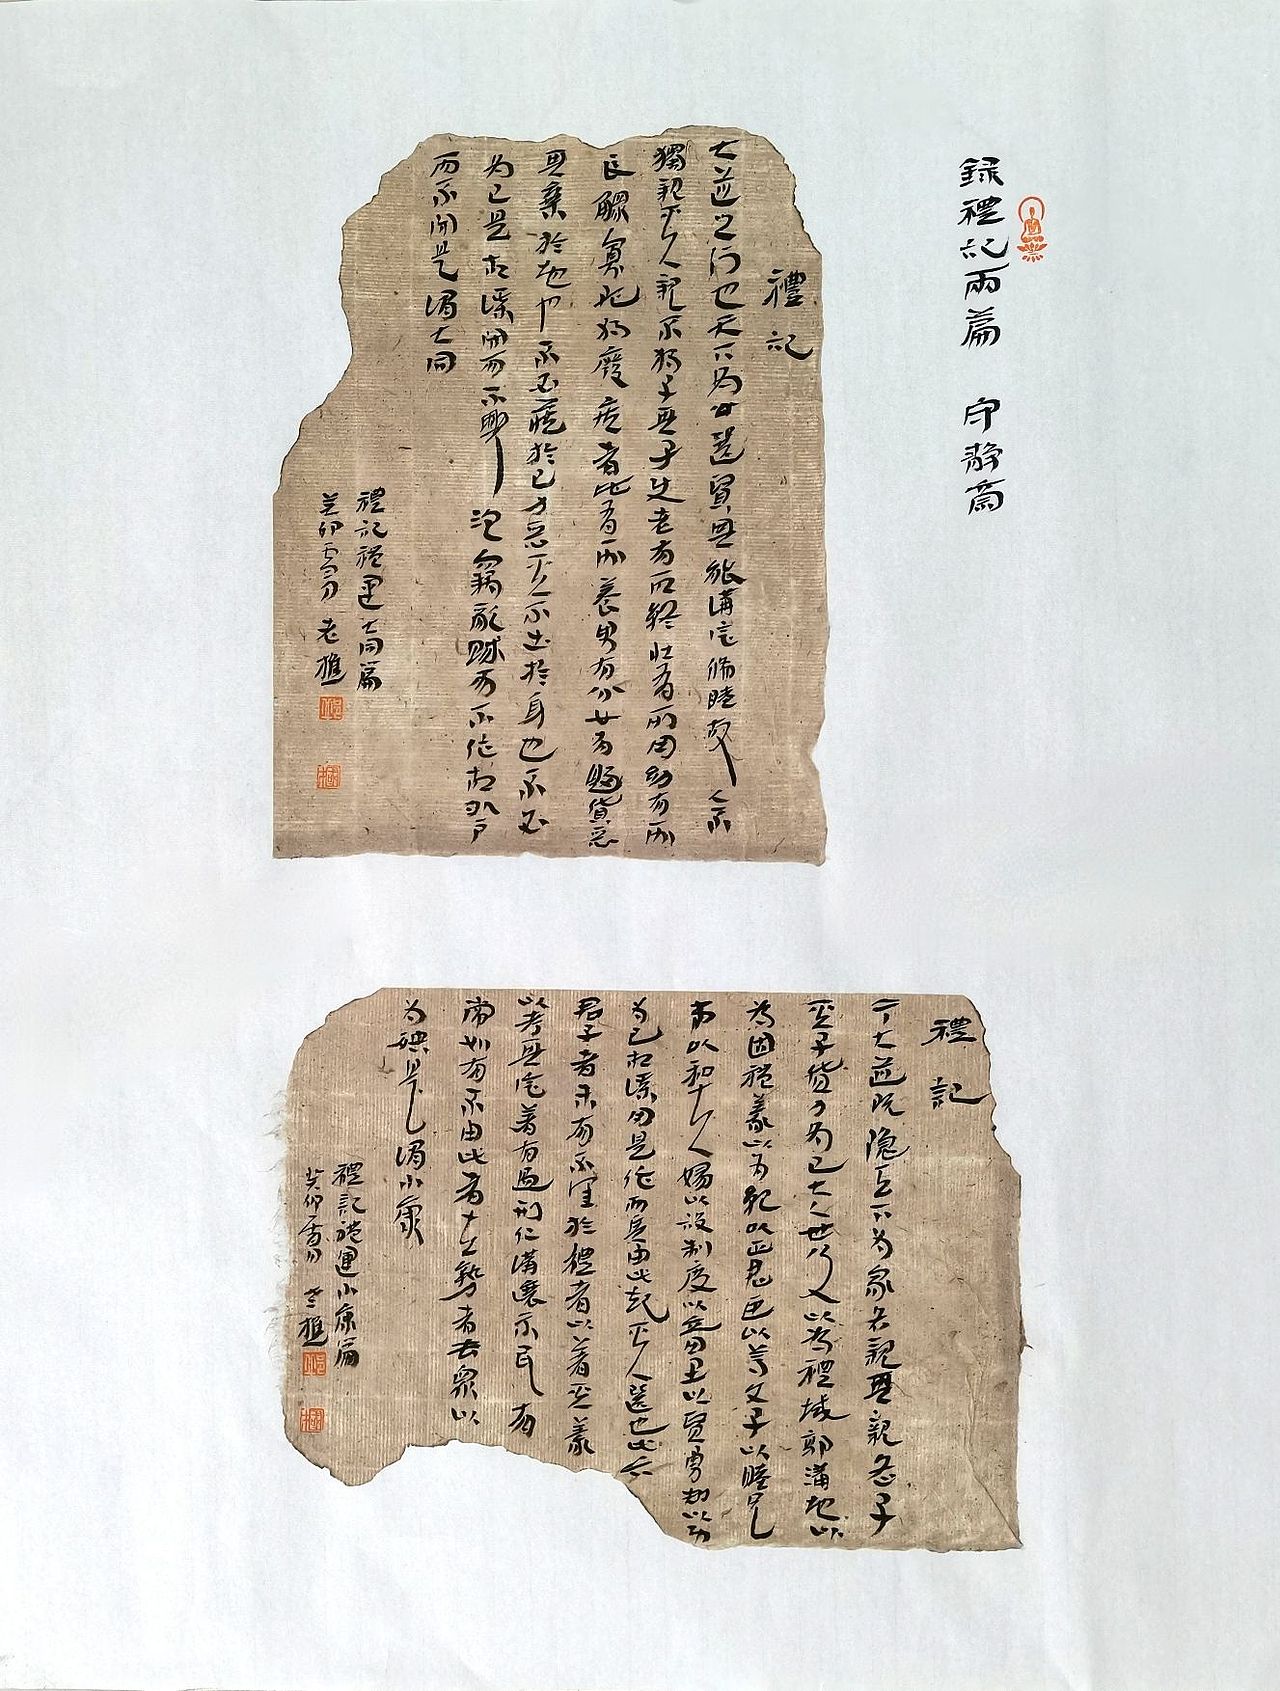 録禮記兩篇 守靜齋
禮記
大道之行也天下為公選賢與能講信脩睦故人不
獨親其人親不獨子其子使老有所終壯有所用幼有所
長鰥寡孤獨廢疾者皆有所養男有分女有歸貨惡
其棄於地也不必藏於己力惡其不出於身也不必
為己是故謀閉而不興盜竊亂賊而不作故外戶
而不閉是謂大同
禮記禮運大同篇
癸卯 老樵
禮記
今大道既隱天下為家各親其親各子
其子貨力為己大人世及以為禮城郭溝池以
為固禮義以為紀以正君臣以篤父子以睦兄
弟以和夫婦以設制度以立田里以賢勇知以功
為己故謀用是作而兵由此起 其選也此六
君子者未有不謹於禮者以著其義
以考其信著有過刑仁講讓示民有
常如有不由此者在勢者去眾以
為殃是謂小康
禮記禮運小康篇
癸卯 老樵